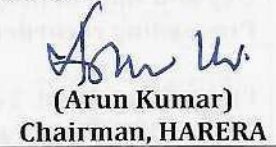 (Arun Kumar)
Chairman, HARERA